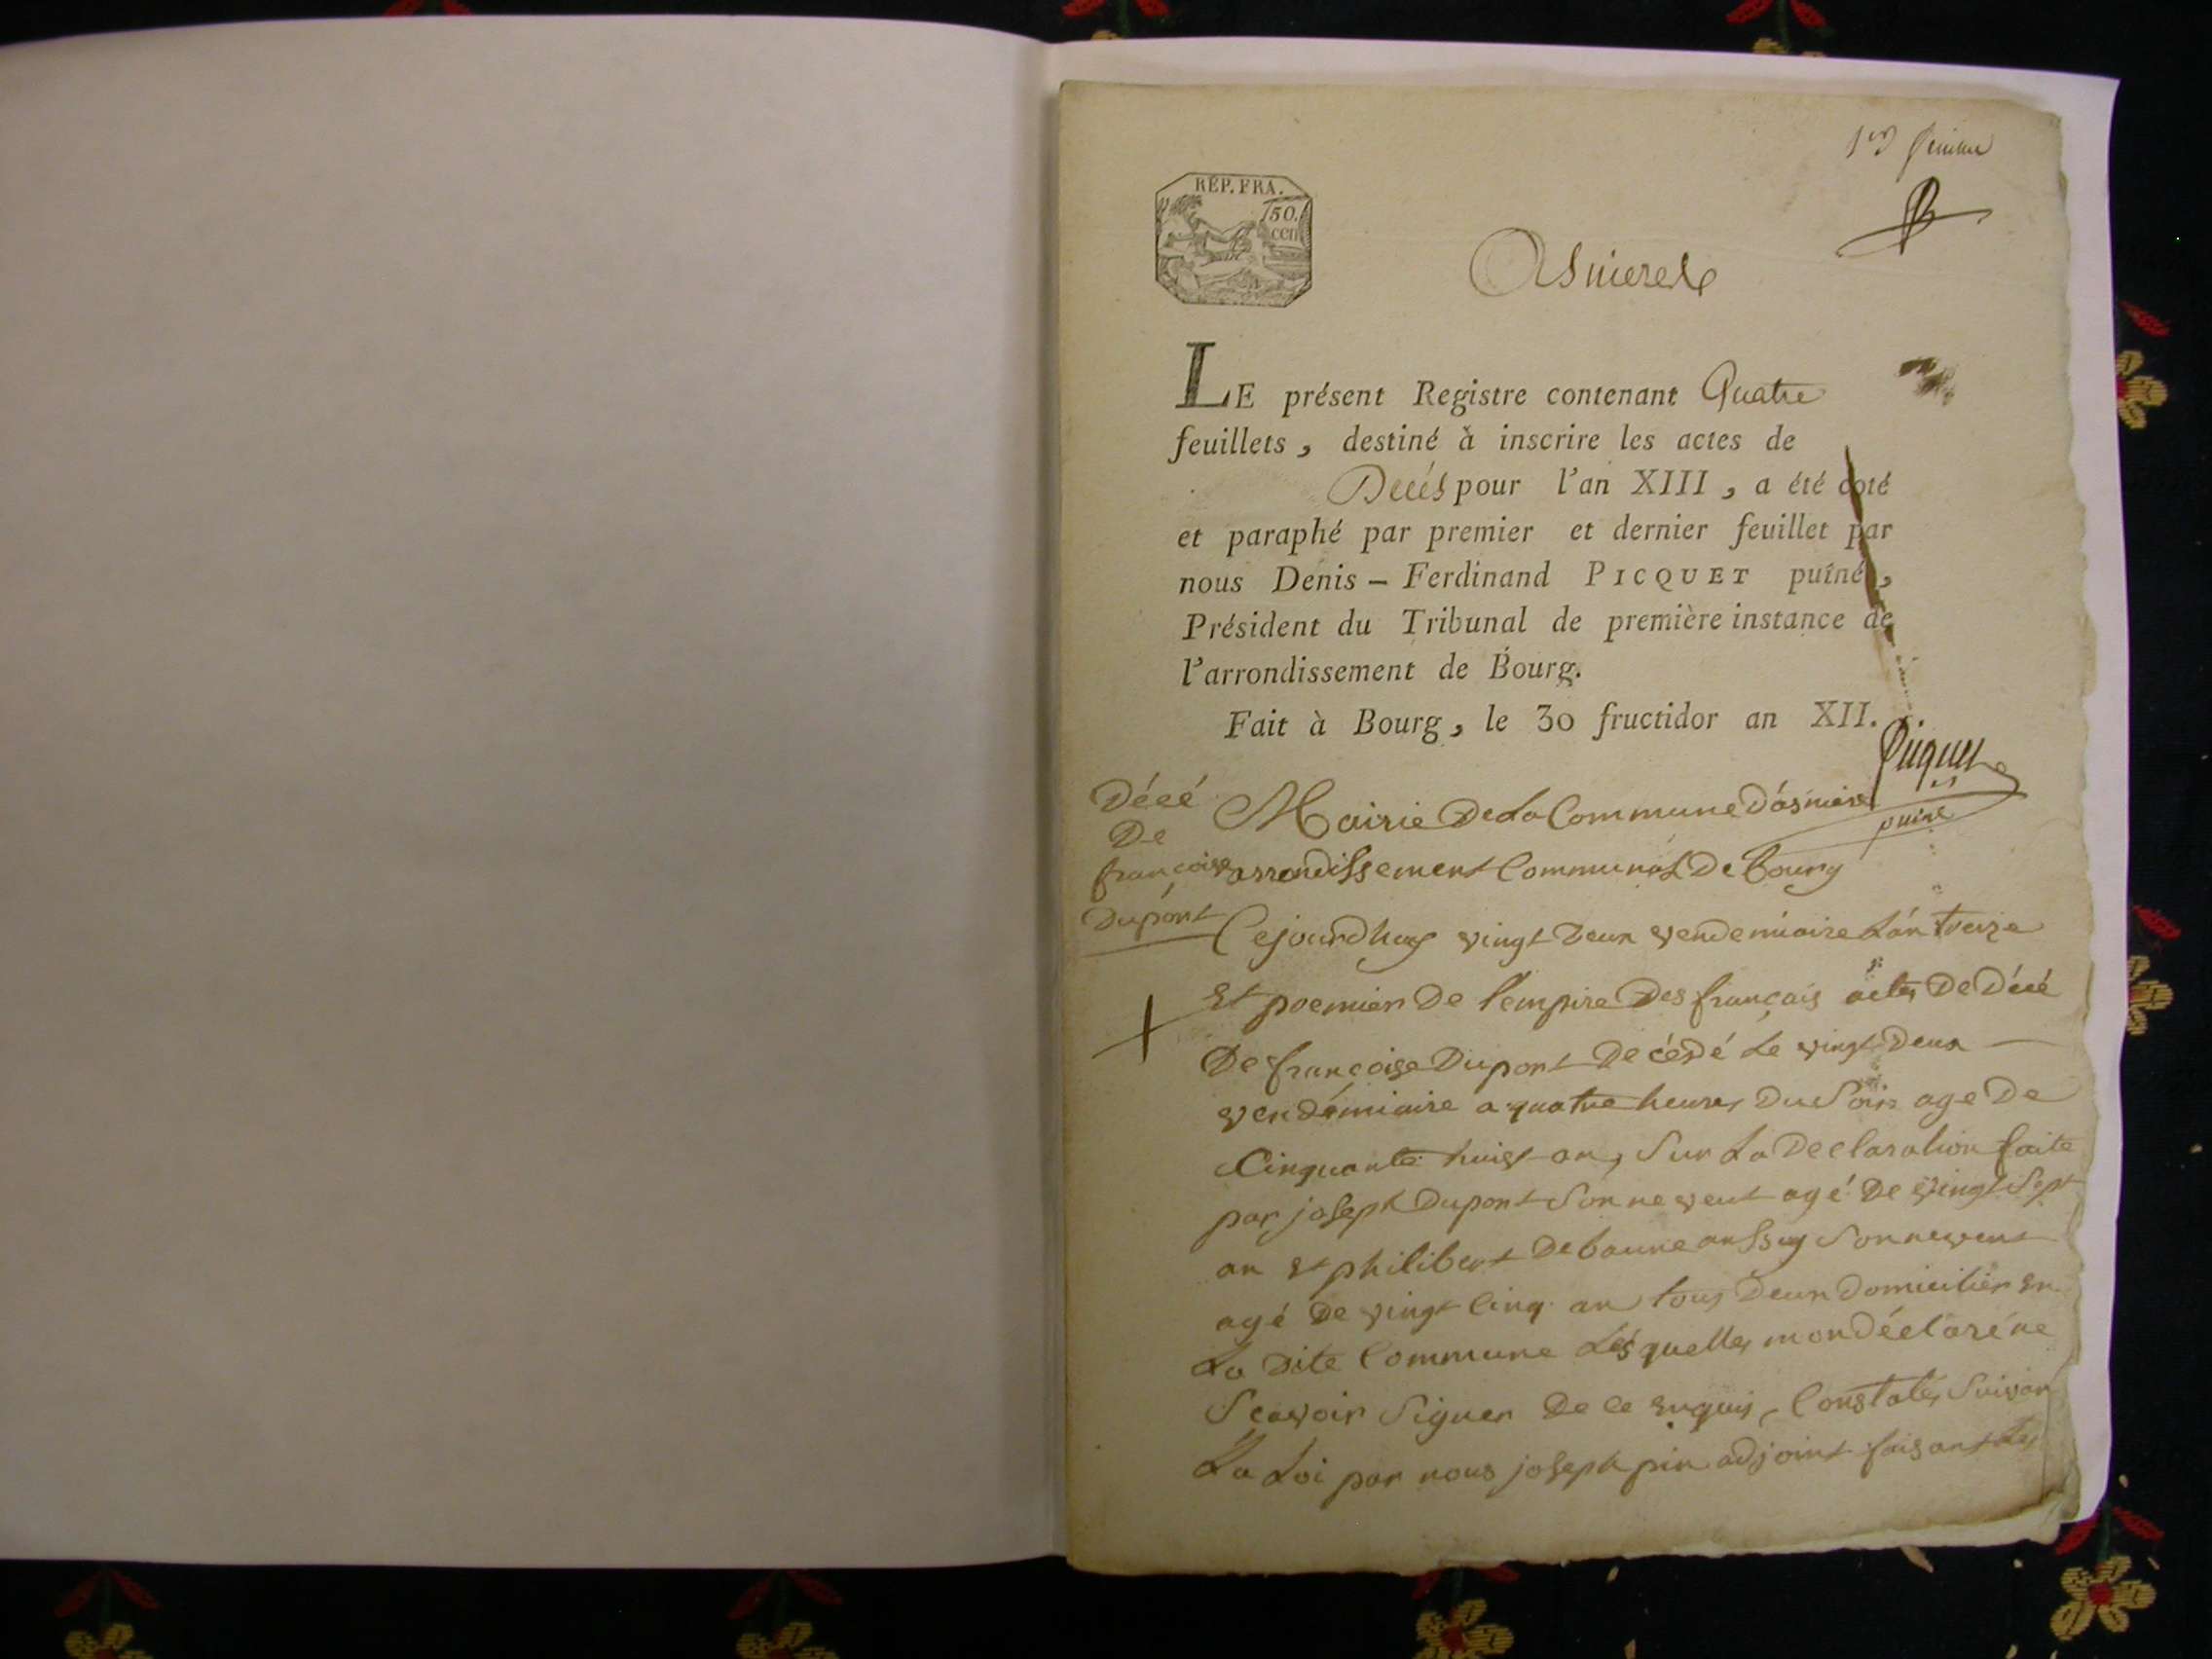 1er feuillet
REP. FRA.
50.
cen
Asnieres
LE présent Registre contenant Quatre
feuillets, destiné à inscrire les actes de
Décés pour l'an XIII, a été coté
et paraphé par premier et dernier feuillet par
nous Denis – Ferdinand PICQUET puîné,
Président du Tribunal de première instance de
l'arrondissement de Bourg.
Fait à Bourg, le 30 fructidor an XII.
Picquet
puiné
Décé
De
françoise
Dupont
Mairie De La Commune D'asniere
arrondissement Communal De bourg
Cejourdhuy vingt Deux vendemiaire L'an treize
Et premier De l'empire Des français acte De Décé
De françoise Dupont Décédé Le vingt Deux
vendémiaire a quatre heures Du Soir age De
Cinquante huit an, Sur La Declaration faite
par joseph Dupont Son neveut agé De vingt Sept
an Et philibert Debaune aussuy Son neveut
agé De vingt Cinq an tous Deux Domicilier En
La Dite Commune Lesquelles mon déclaré ne
Scavoir Signer De ce Enquis, Constaté Suivan
La Loi par nous joseph pin adjoint faisant Les